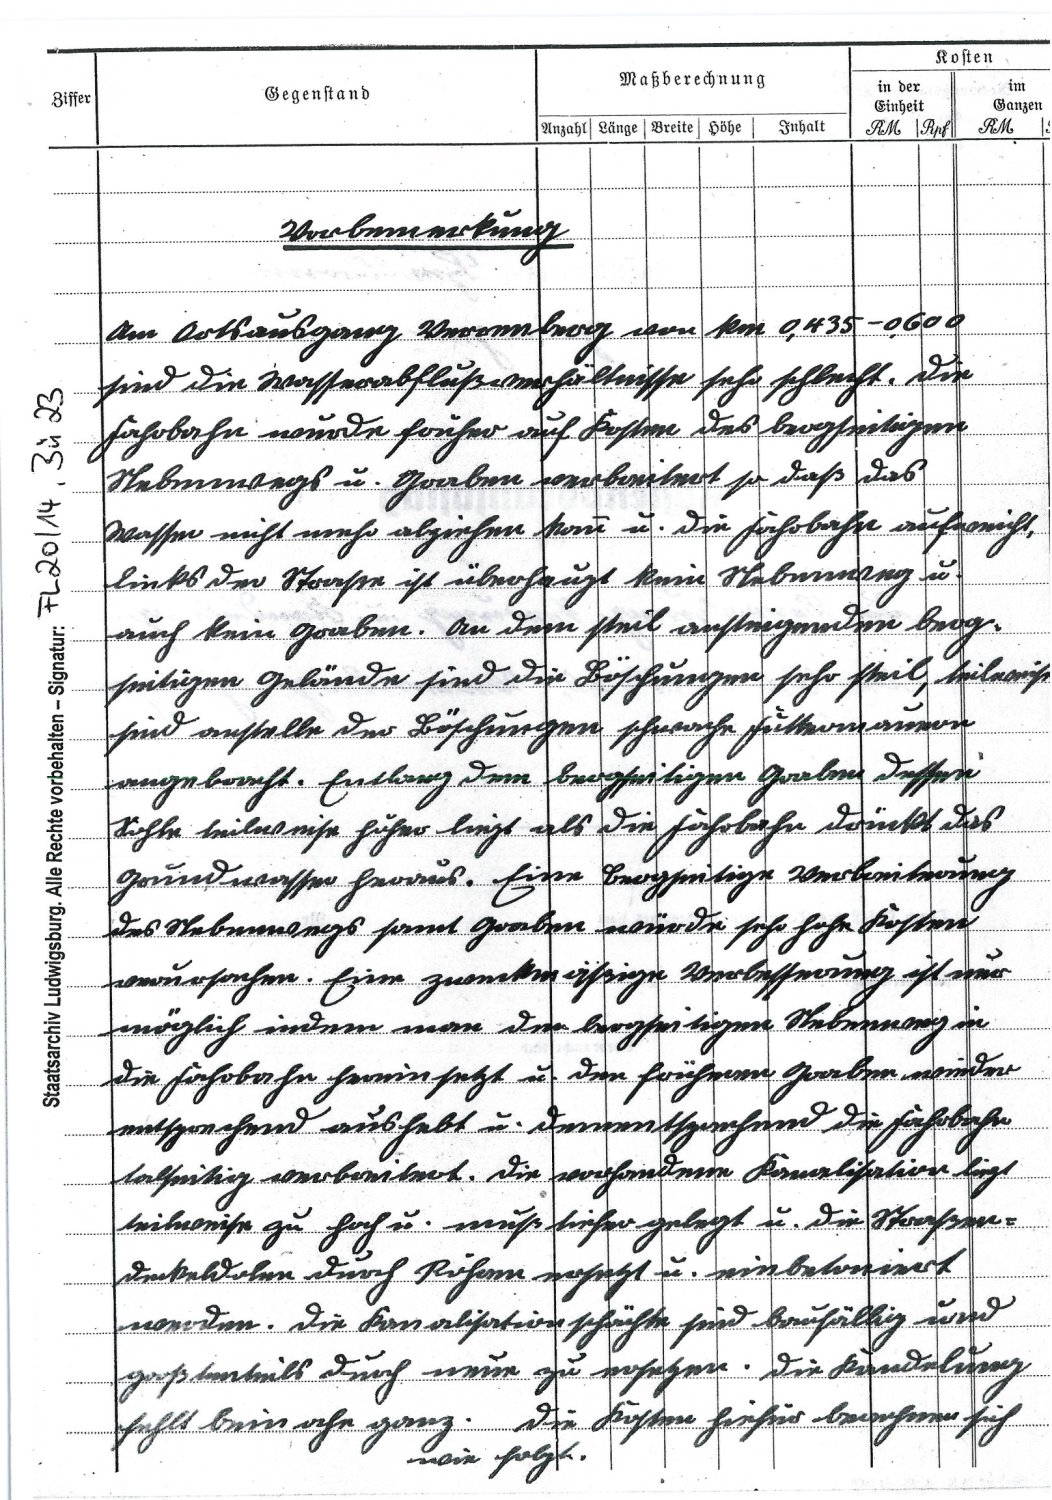 Kosten
Ziffer
Gegenstand
Maßberechnung
in der Einheit
im Ganzen
Anzahl Länge Breite Höhe Inhalt RM Rpf RM
Vorbemerkung
Am Ortsausgang Verrenberg von km 0,435 – 0,600
sind die Wasserabflußverhältnisse sehr schlecht. Die
Fahrbahn wurde früher auf Kosten des bergseitigen
Nebenwegs u. Graben verbreitert so daß das
Wasser nicht mehr abziehen kann u. die Fahrbahn aufweicht,
links der Straße ist überhaupt kein Nebenweg u.
auch kein Graben. An dem steil ansteigenden berg-
seitigen Gelände sind die Böschungen sehr steil, teilweise
sind anstelle der Böschungen schwache Futtermauern
angebracht. Entlang dem bergseitigen Graben dessen
Sohle teilweise höher liegt als die Fahrbahn drückt das
Grundwasser heraus. Eine bergseitige Verbreiterung
des Nebenwegs samt Graben würde sehr hohe Kosten
verursachen. Eine zweckmässige Verbesserung ist nur
möglich indem man den bergseitigen Nebenweg in
die Fahrbahn hereinsetzt u. den früheren Graben wieder
entsprechend aushebt u. dementsprechend die Fahrbahn
talseitig verbreitert. Die vorhandene Kanalisation liegt
teilweise zu hoch u. muß tiefer gelegt u. die Straßen=
deckeldolen durch Röhren ersetzt u. einbetoniert
werden. Die Kanalisationschächte sind baufällig und
großtenteils durch neue zu ersetzen. Die Kandelung
fehlt beinahe ganz. Die Kosten hiefür berechnen sich
wie folgt.
Staatsarchiv Ludwigsburg. Alle Rechte vorbehalten – Signatur: FL 20/14, Bü 23